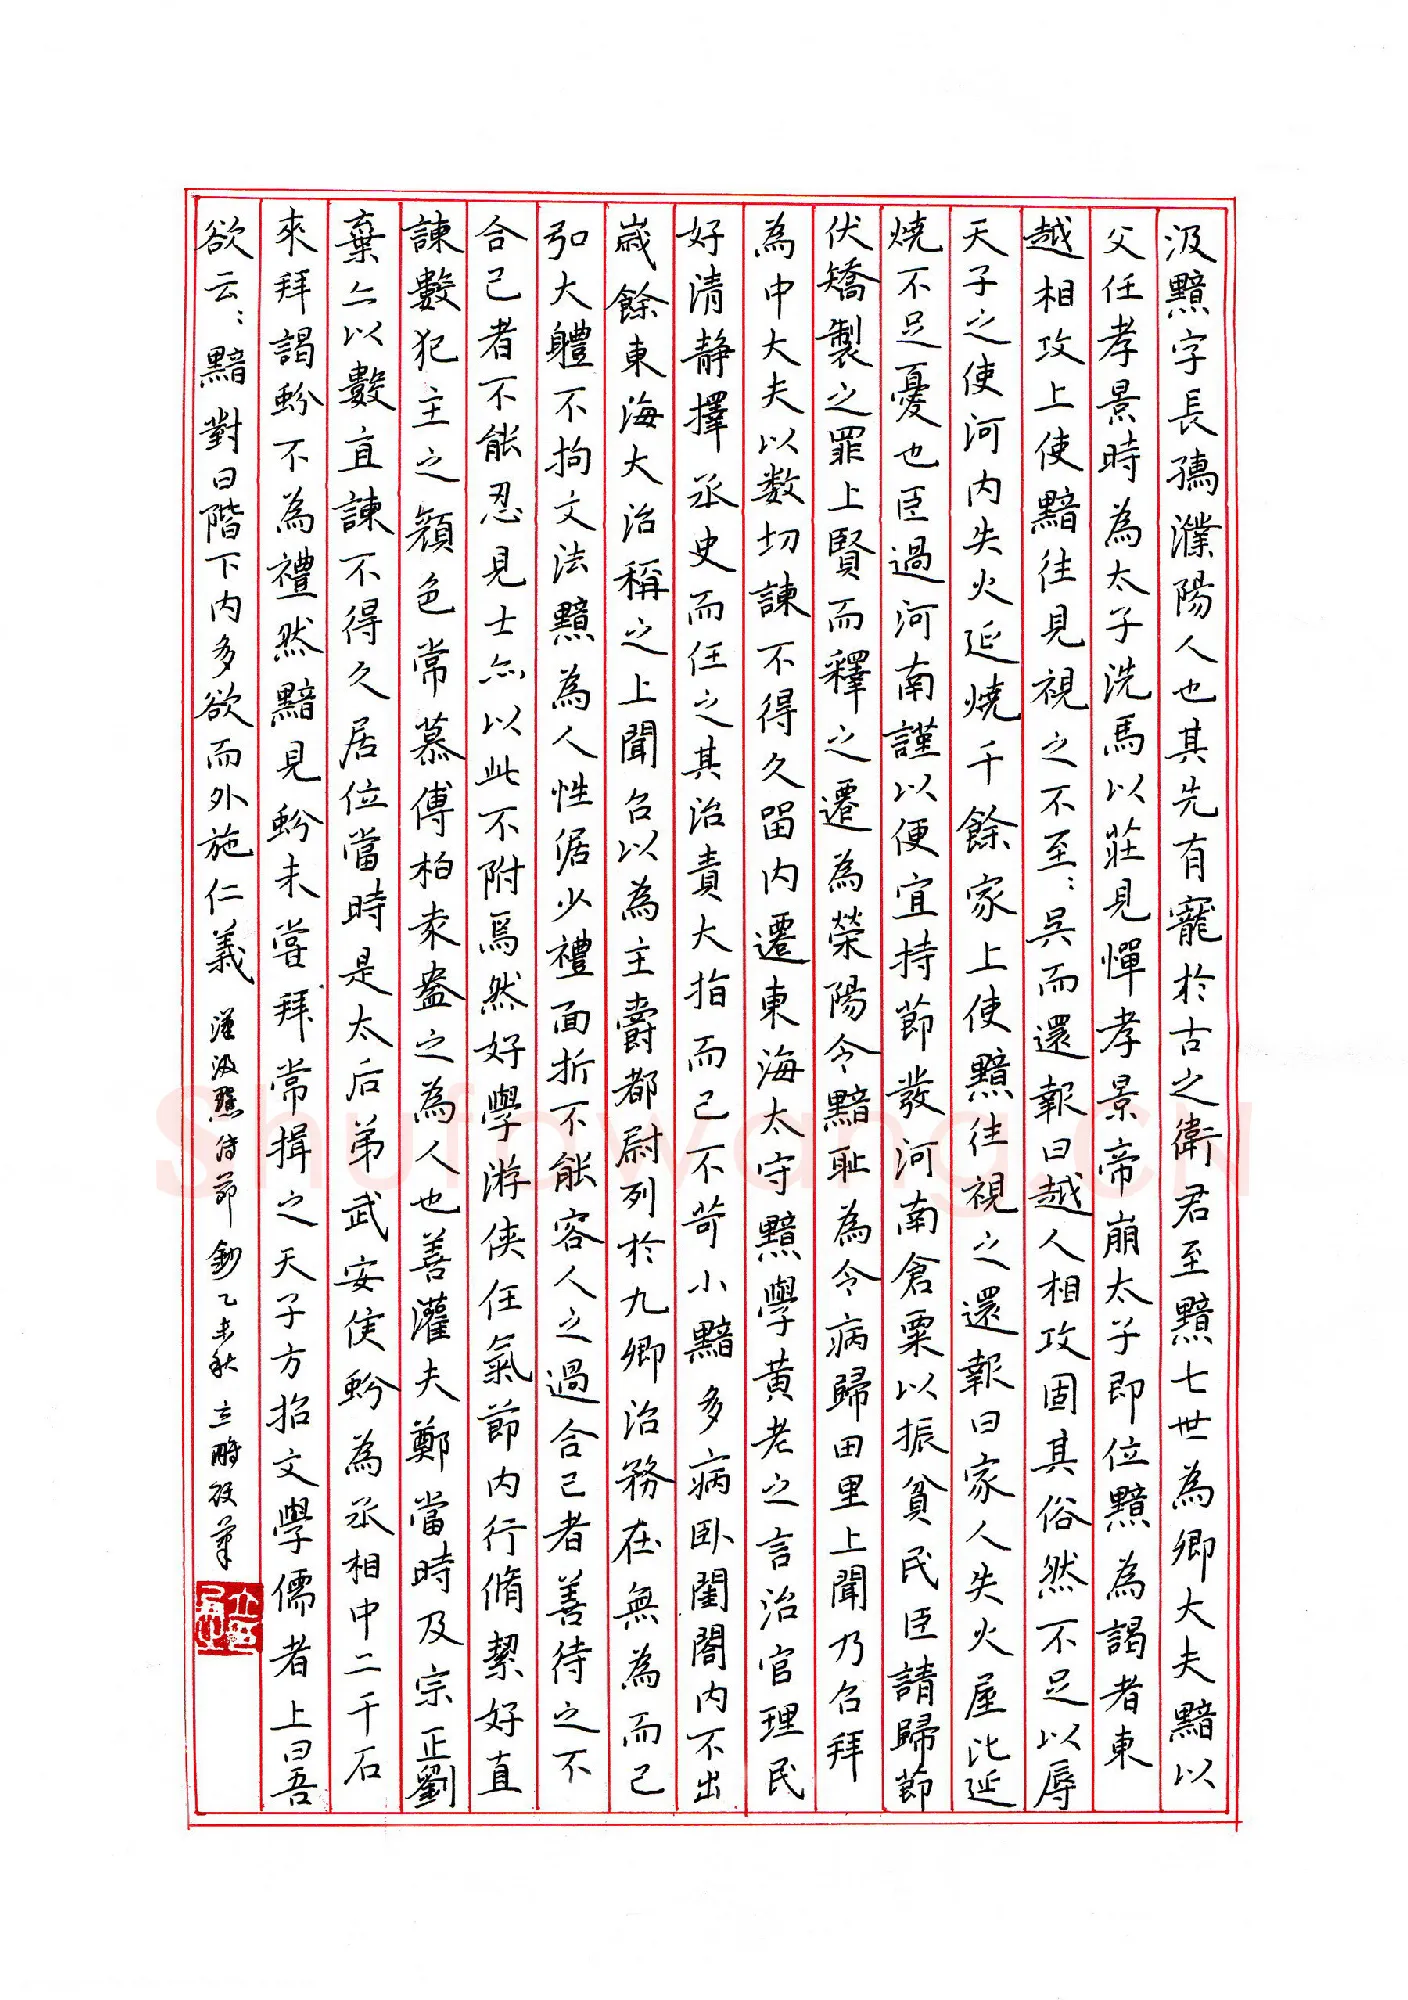 汲黯字長孺濮陽人也其先有寵於古之衛君至黯七世為卿大夫黯以
父任孝景時為太子洗馬以莊見憚孝景帝崩太子即位黯為謁者東
越相攻上使黯往見視之不至:吳而還報曰越人相攻固其俗然不足以辱
天子之使河内失火延燒千餘家上使黯往視之還報曰家人失火屋比延
燒不足憂也臣過河南謹以便宜持節發河南倉粟以振貧民臣請歸節
伏矯製之罪上賢而釋之遷為榮陽令黯恥為令病歸田里上聞乃召拜
為中大夫以数切諫不得久留内遷東海太守黯學黃老之言治官理民
好清静擇丞史而任之其治責大指而已不苛小黯多病卧閨閤内不出
歲餘東海大治稱之上聞召以為主爵都尉列於九卿治務在無為而已
弘大體不拘文法黯為人性倨少禮面折不能容人之過合己者善待之不
合己者不能忍見士亦以此不附焉然好學游俠任氣節内行脩絜好直
諫數犯主之顏色常慕傅柏袁盎之為人也善灌夫鄭當時及宗正劉
棄亦以數直諫不得久居位當時是太后弟武安侯蚡為丞相中二千石
來拜謁蚡不為禮然黯見蚡未嘗拜常揖之天子方招文學儒者上曰吾
欲云:黯對曰階下内多欲而外施仁義 漢汲黯傳節 鈔乙未秋立時硬筆
Shufawang.CN